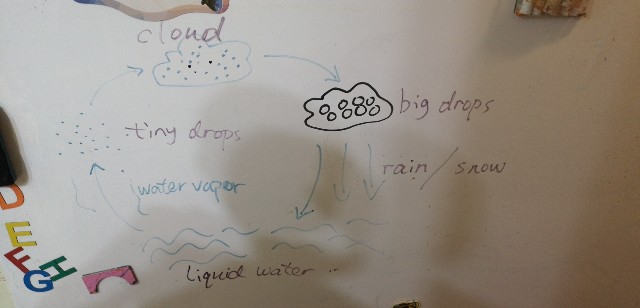 cloud
big drops
tiny drops
rain/snow
water vapor
liquid water ..
D
E
F
G
H